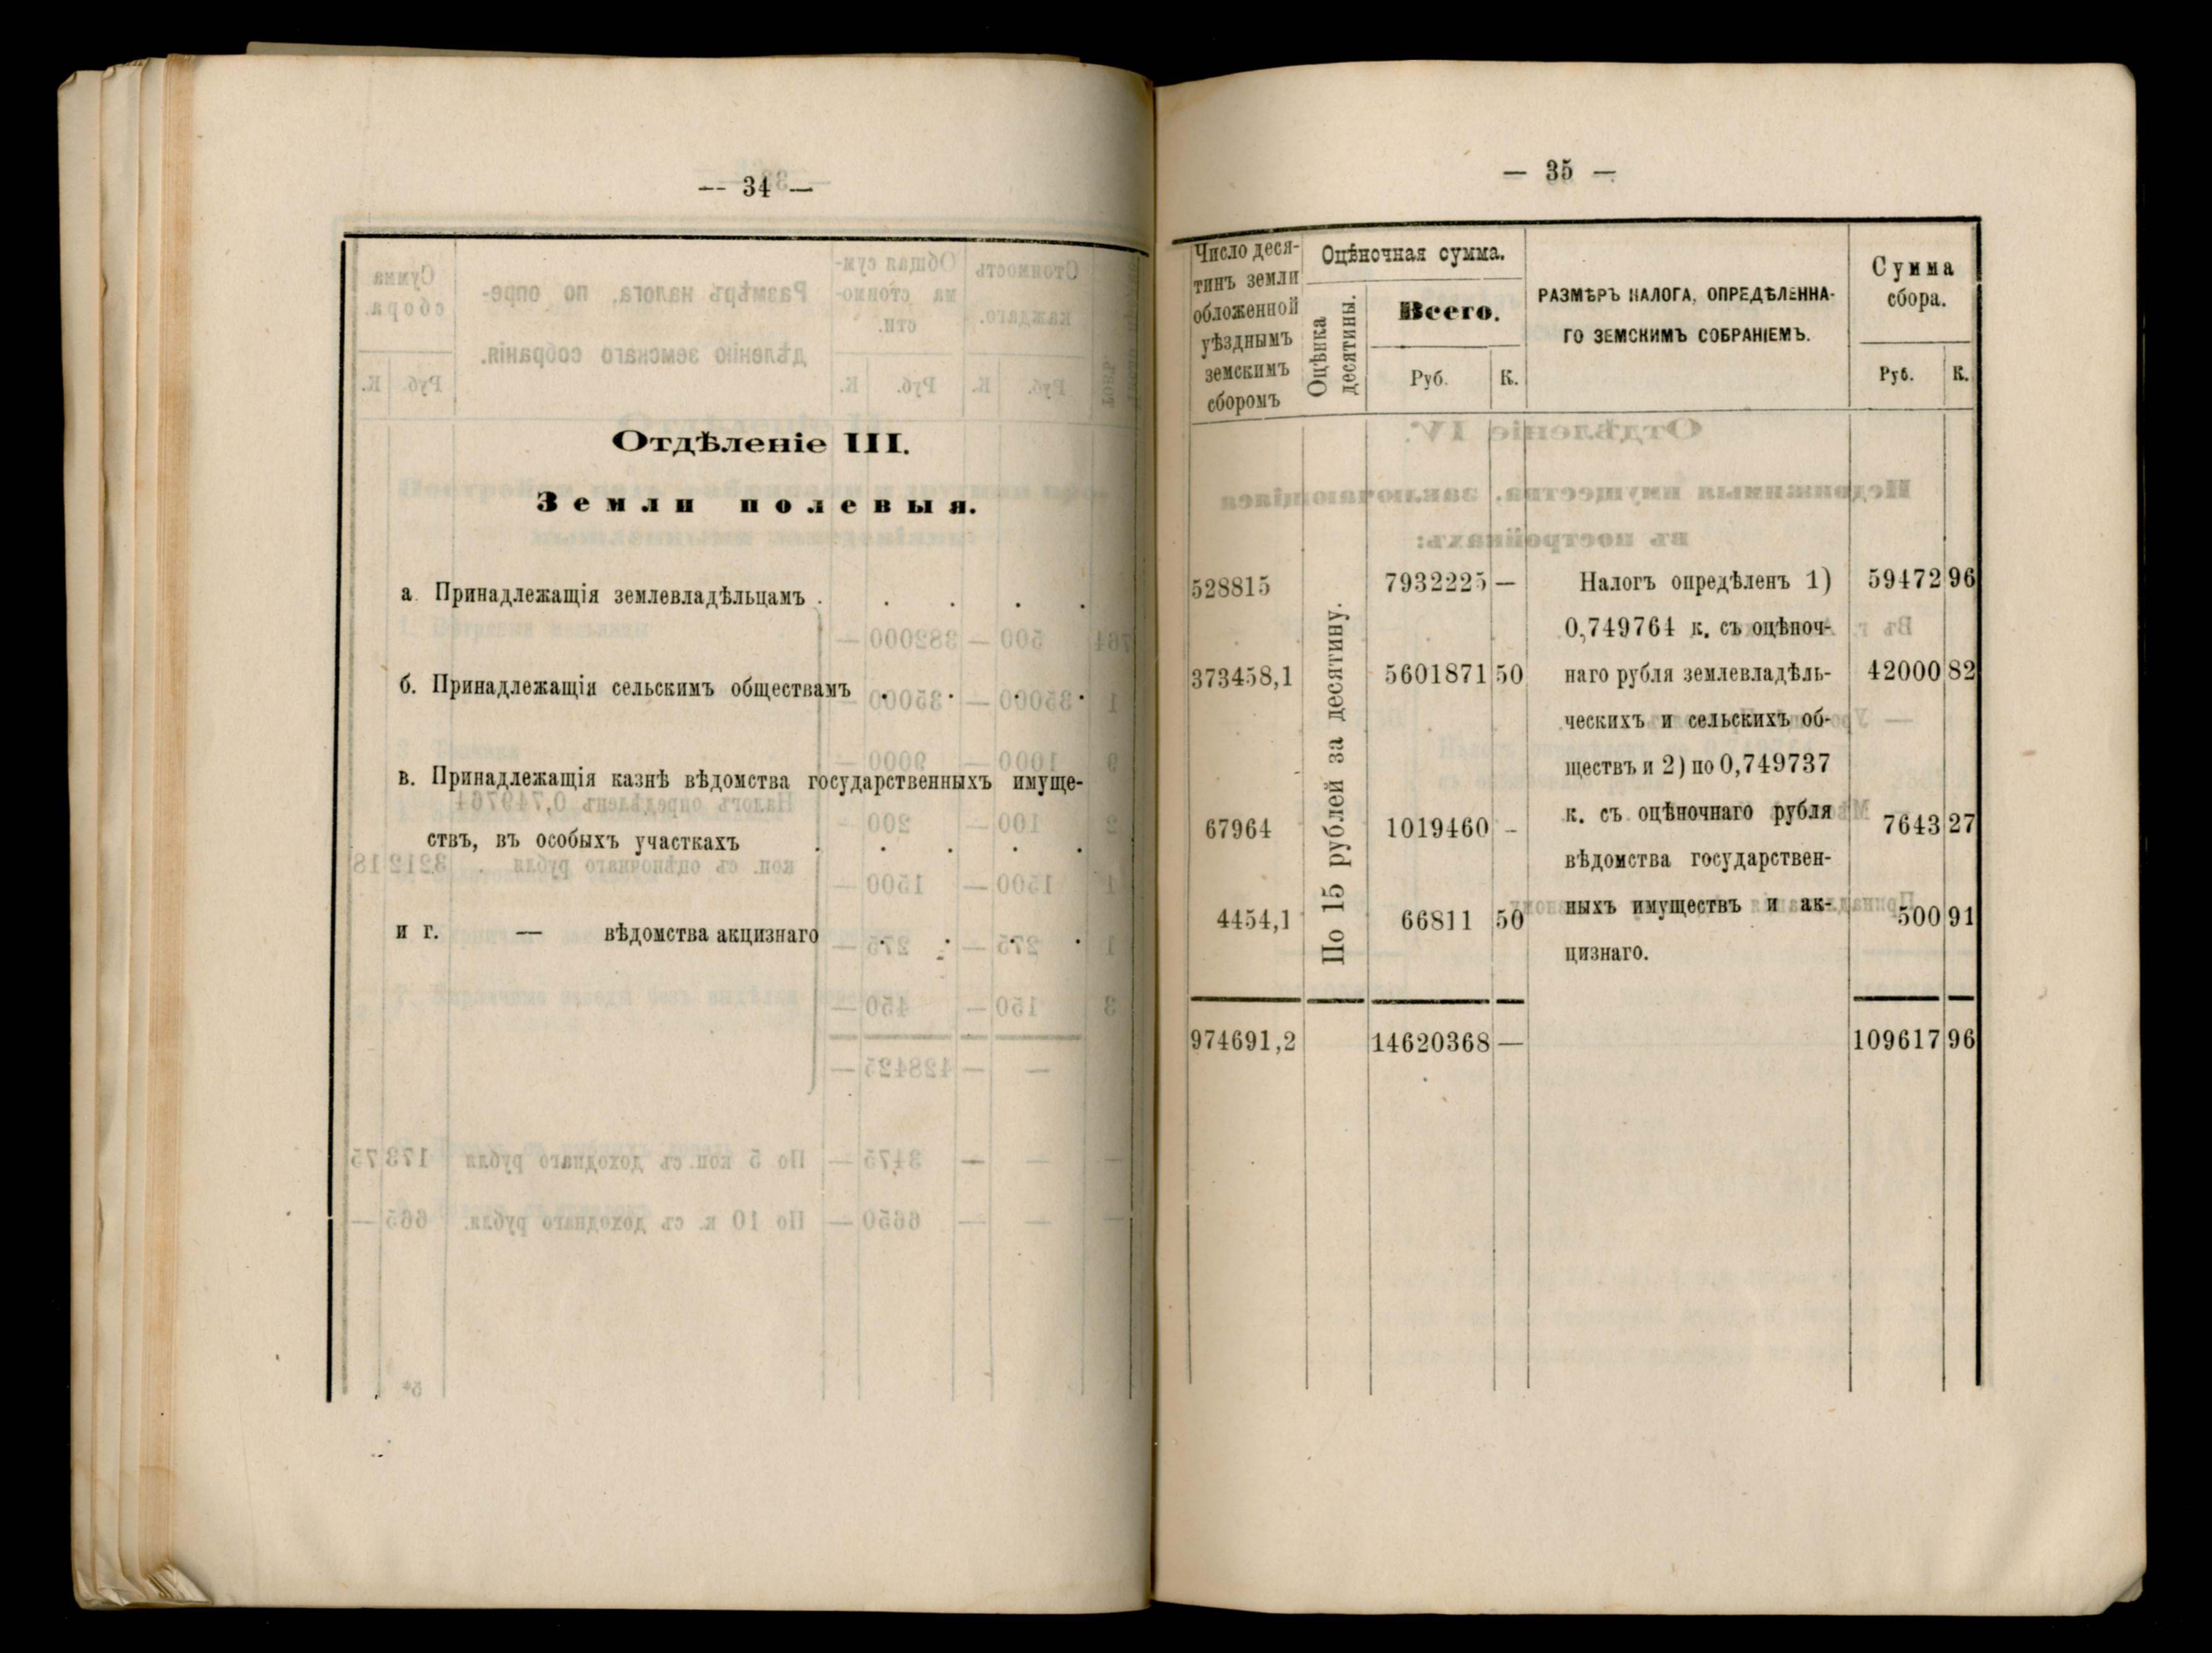 — 34 —
Отдѣленіе III.
Земли полевыя.
а. Принадлежащія землевладѣльцамъ . . . . .
б. Принадлежащія сельскимъ обществамъ . . . .
в. Принадлежащія казнѣ вѣдомства государственныхъ имуще-
ствъ, въ особыхъ участкахъ . . . . .
и г. — вѣдомства акцизнаго . . . .
— 35 —
Число деся-
тинъ земли
обложенной
уѣзднымъ
земскимъ
сборомъ
Оцѣночная сумма.
Оцѣнка
десятины.
Всего.
Руб. К.
РАЗМѢРЪ НАЛОГА, ОПРЕДѢЛЕННА-
ГО ЗЕМСКИМЪ СОБРАНІЕМЪ.
Сумма
сбора.
Руб. К.
528815 7932225 — 59472 96
373458,1 5601871 50 42000 82
67964 1019460 - 7643 27
4454,1 66811 50 500 91
По 15 рублей за десятину.
Налогъ опредѣленъ 1)
0,749764 к. съ оцѣноч-
наго рубля землевладѣль-
ческихъ и сельскихъ об-
ществъ и 2) по 0,749737
к. съ оцѣночнаго рубля
вѣдомства государствен-
ныхъ имуществъ и ак-
цизнаго.
974691,2 14620368 — 109617 96